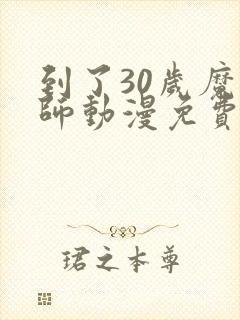 到了30歲魔
師動漫免費
珺之本尊